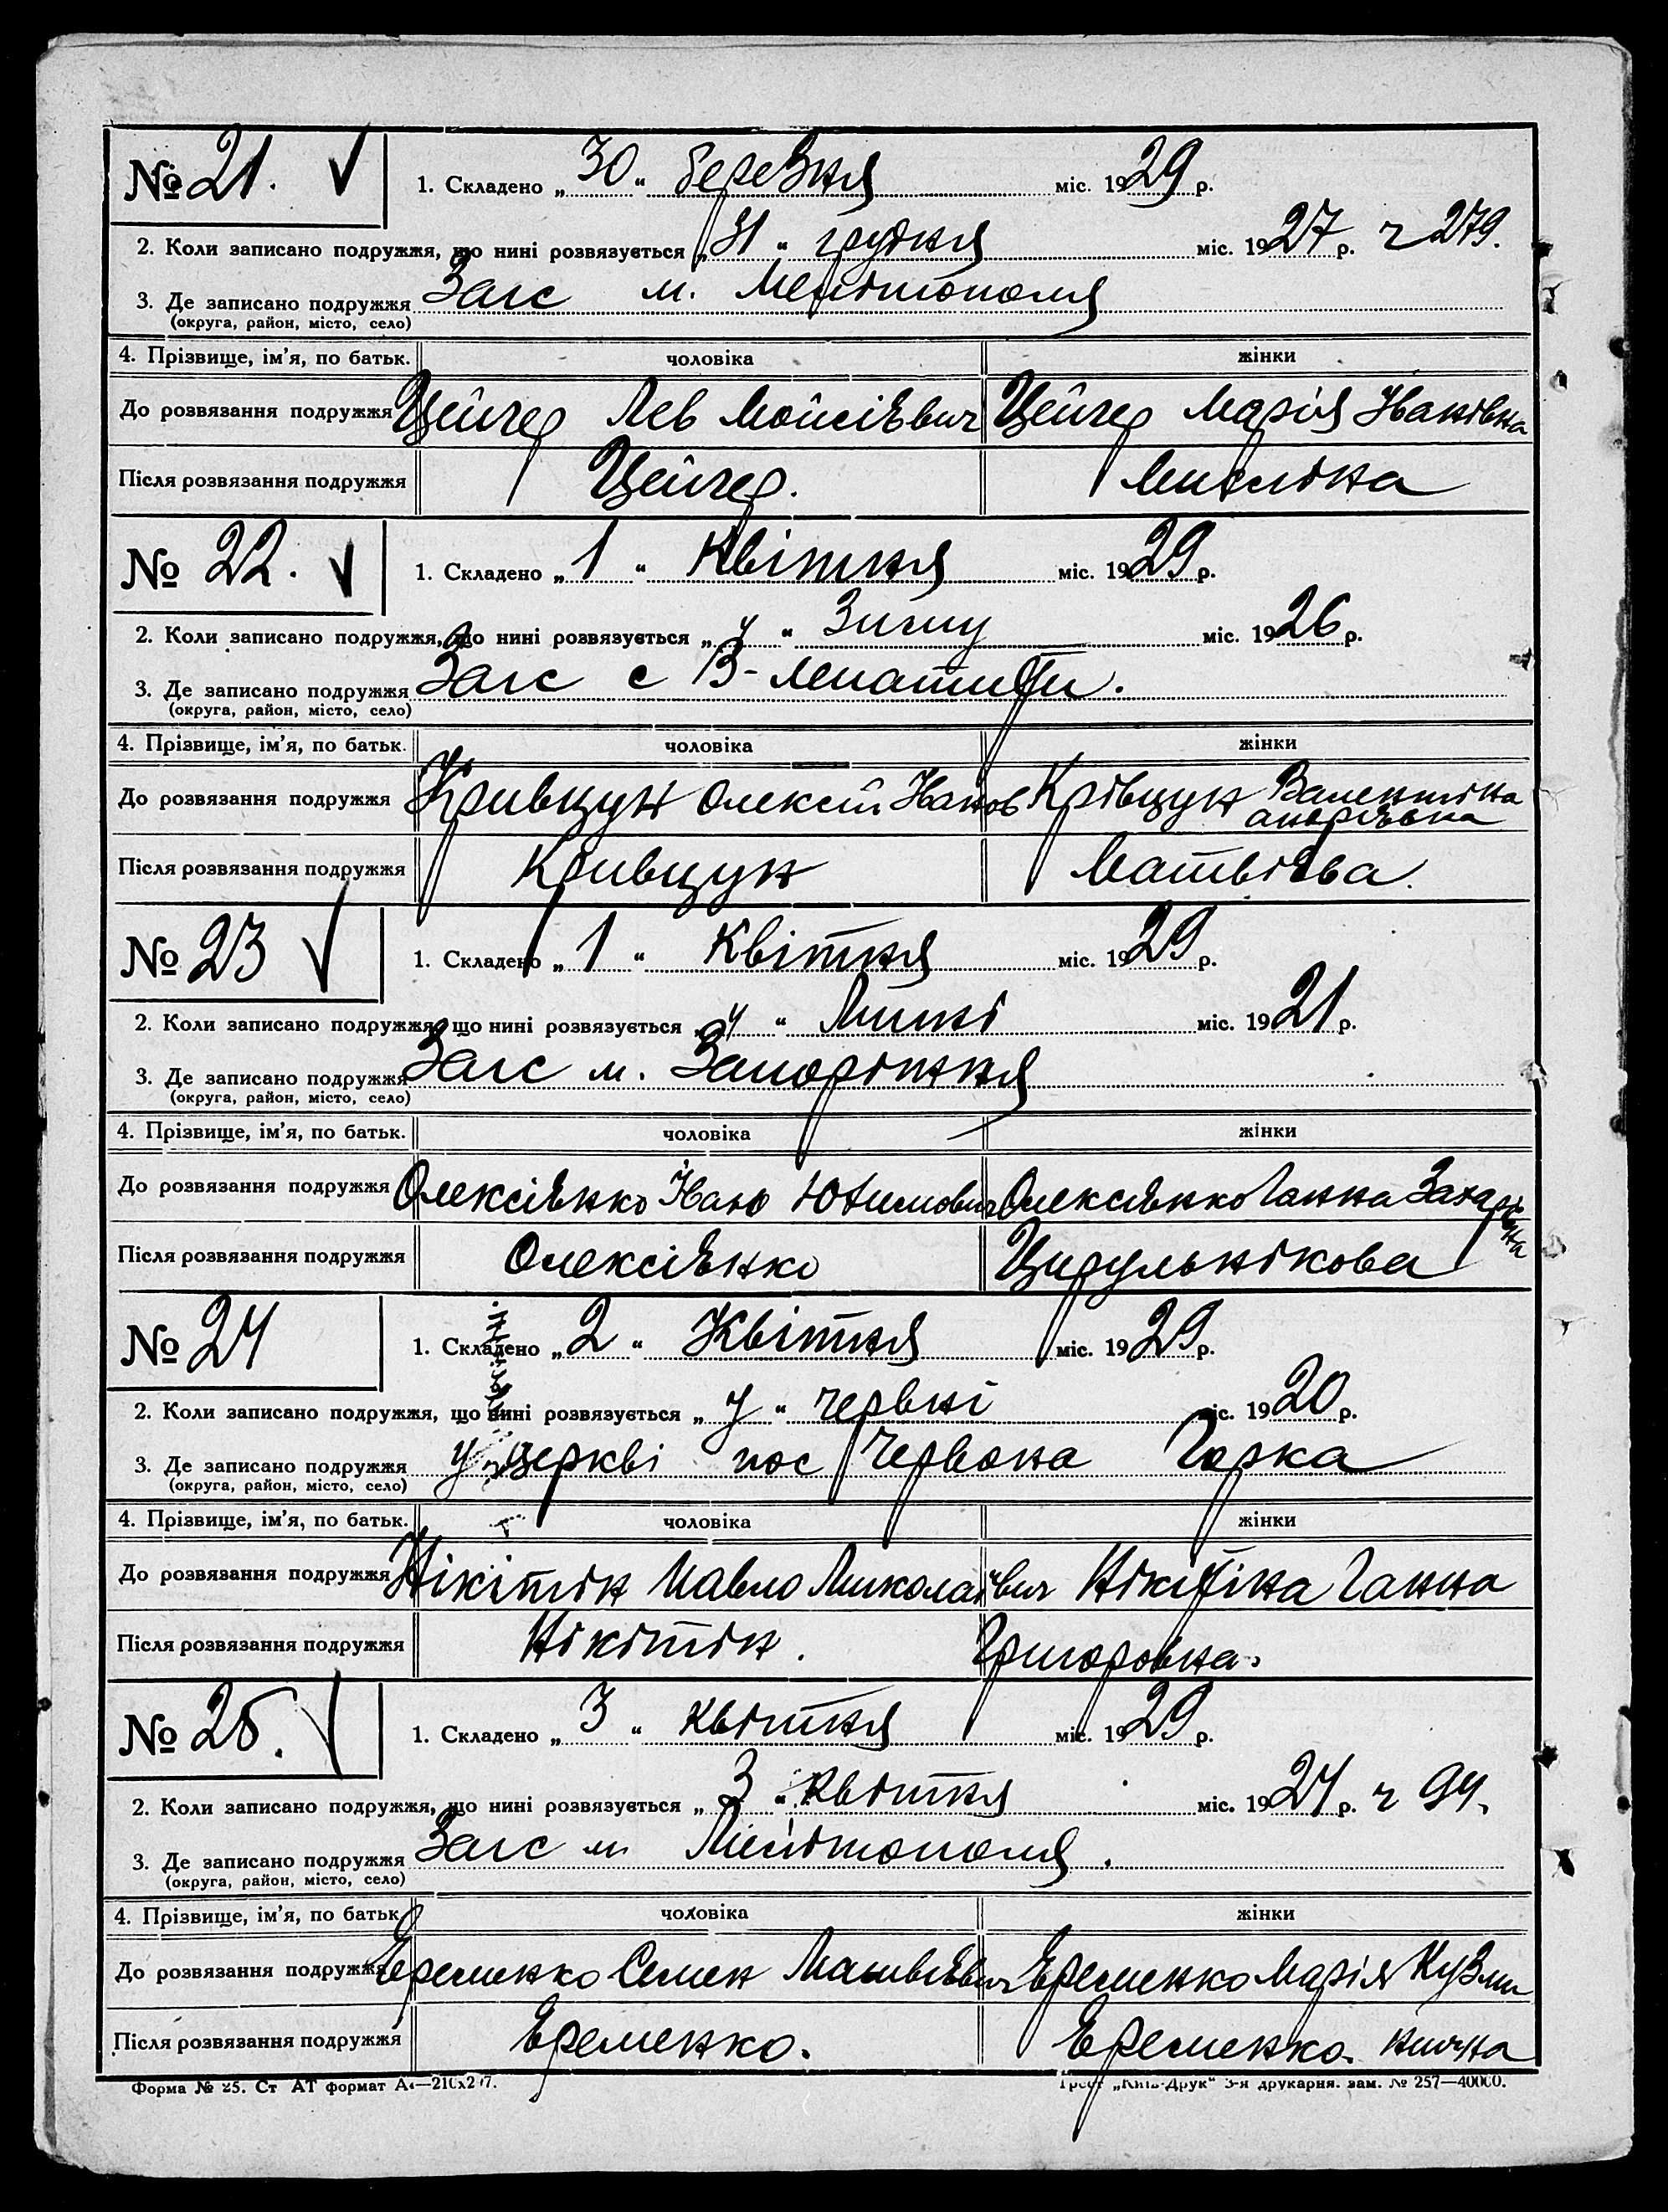 № 21.
1. Складено „30“ березня міс. 1929 р.
2. Коли записано подружжя, що нині розвязується „31“ грудня міс. 1927 р. ч 279.
3. Де записано подружжя Загс м. Мелітополя
(округа, район, місто, село)
4. Прізвище, ім'я, по батьк. чоловіка жінки
До розвязання подружжя Цейгер Лев Мойсієвич Цейгер Марія Іванівна
Після розвязання подружжя Цейгер.
№ 22.
1. Складено „1“ Квітня міс. 1929 р.
2. Коли записано подружжя, що нині розвязується „у“ Зиму міс. 1926 р.
3. Де записано подружжя Загс с В-
(округа, район, місто, село)
4. Прізвище, ім'я, по батьк. чоловіка жінки
До розвязання подружжя Кривцун Олексій Іванов Крівцун Валентіна
андрієвна
Після розвязання подружжя Кривцун Матвієва.
№ 23
1. Складено „1“ Квітня міс. 1929 р.
2. Коли записано подружжя, що нині розвязується „у“ Липні міс. 1921 р.
3. Де записано подружжя Загс м. Запоріжжя
(округа, район, місто, село)
4. Прізвище, ім'я, по батьк. чоловіка жінки
До розвязання подружжя Олексієнко Іван Юхимович Олексієнко Ганна Захарівна
Після розвязання подружжя Олексієнко Цирульнікова
№ 24
1. Складено „2“ Квітня міс. 1929 р.
2. Коли записано подружжя, що нині розвязується „у“ червні міс. 1920 р.
3. Де записано подружжя у церкві пос Червона Горка
(округа, район, місто, село)
4. Прізвище, ім'я, по батьк. чоловіка жінки
До розвязання подружжя Нікітін Павло Миколаївич Нікітіна Ганна
Після розвязання подружжя Нікітін. Григоровна.
№ 25.
1. Складено „3“ квітня міс. 1929 р.
2. Коли записано подружжя, що нині розвязується „3“ квітня міс. 1924 р. ч 94.
3. Де записано подружжя Загс м Мелітополя.
(округа, район, місто, село)
4. Прізвище, ім'я, по батьк. чоловіка жінки
До розвязання подружжя Еременко Семен Матвієвич Еременко Марія Кузми
Після розвязання подружжя Еременко. Еременко. нична
Форма № 25. Ст АТ формат А4—210х297. Трест „Київ-Друк“ 3-я друкарня. зам. № 257—40000.